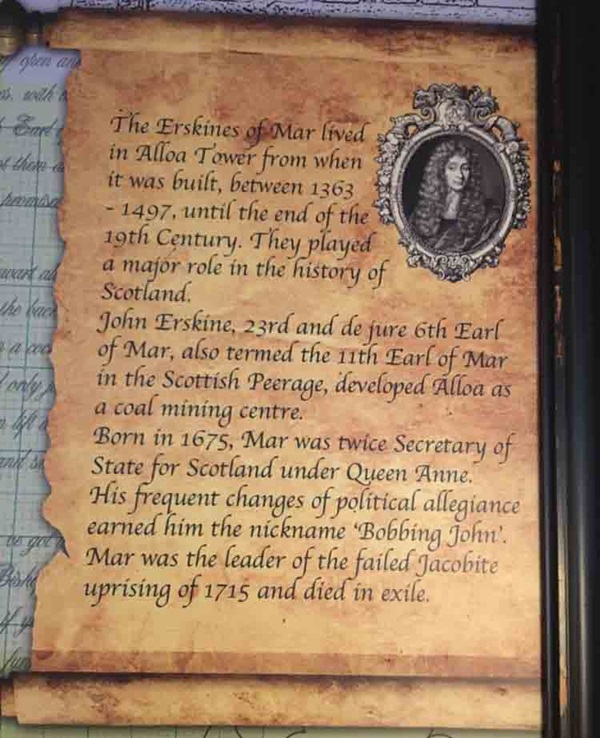 The Erskines of Mar lived
in Alloa Tower from when
it was built, between 1363
- 1497, until the end of the
19th Century. They played
a major role in the history of
Scotland.
John Erskine, 23rd and de jure 6th Earl
of Mar, also termed the 11th Earl of Mar
in the Scottish Peerage, developed Alloa as
a coal mining centre.
Born in 1675, Mar was twice Secretary of
State for Scotland under Queen Anne.
His frequent changes of political allegiance
earned him the nickname 'Bobbing John'.
Mar was the leader of the failed Jacobite
uprising of 1715 and died in exile.